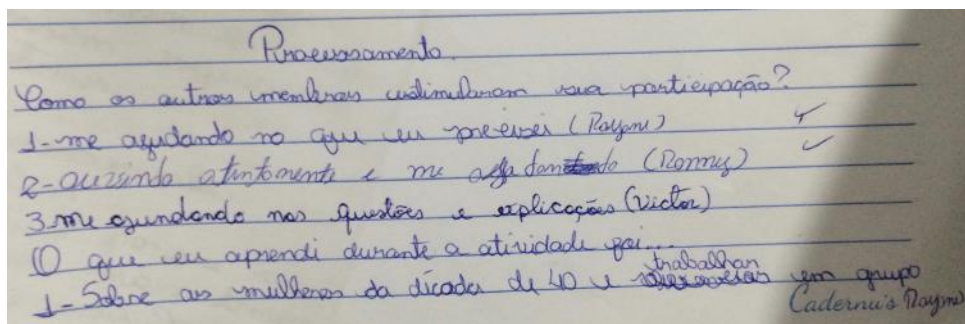 Processamento.
Como os outros membros estimularam sua participação?
1-me ajudando no que eu precisei (Rayani)
2-Ouzindo atentamente e me (Ronny)
3.me ajundando nas questões e explicações (Victor)
O que eu aprendi durante a atividade foi...
1-Sobre as mulheres da dícada de 40 e trabalhar em grupo